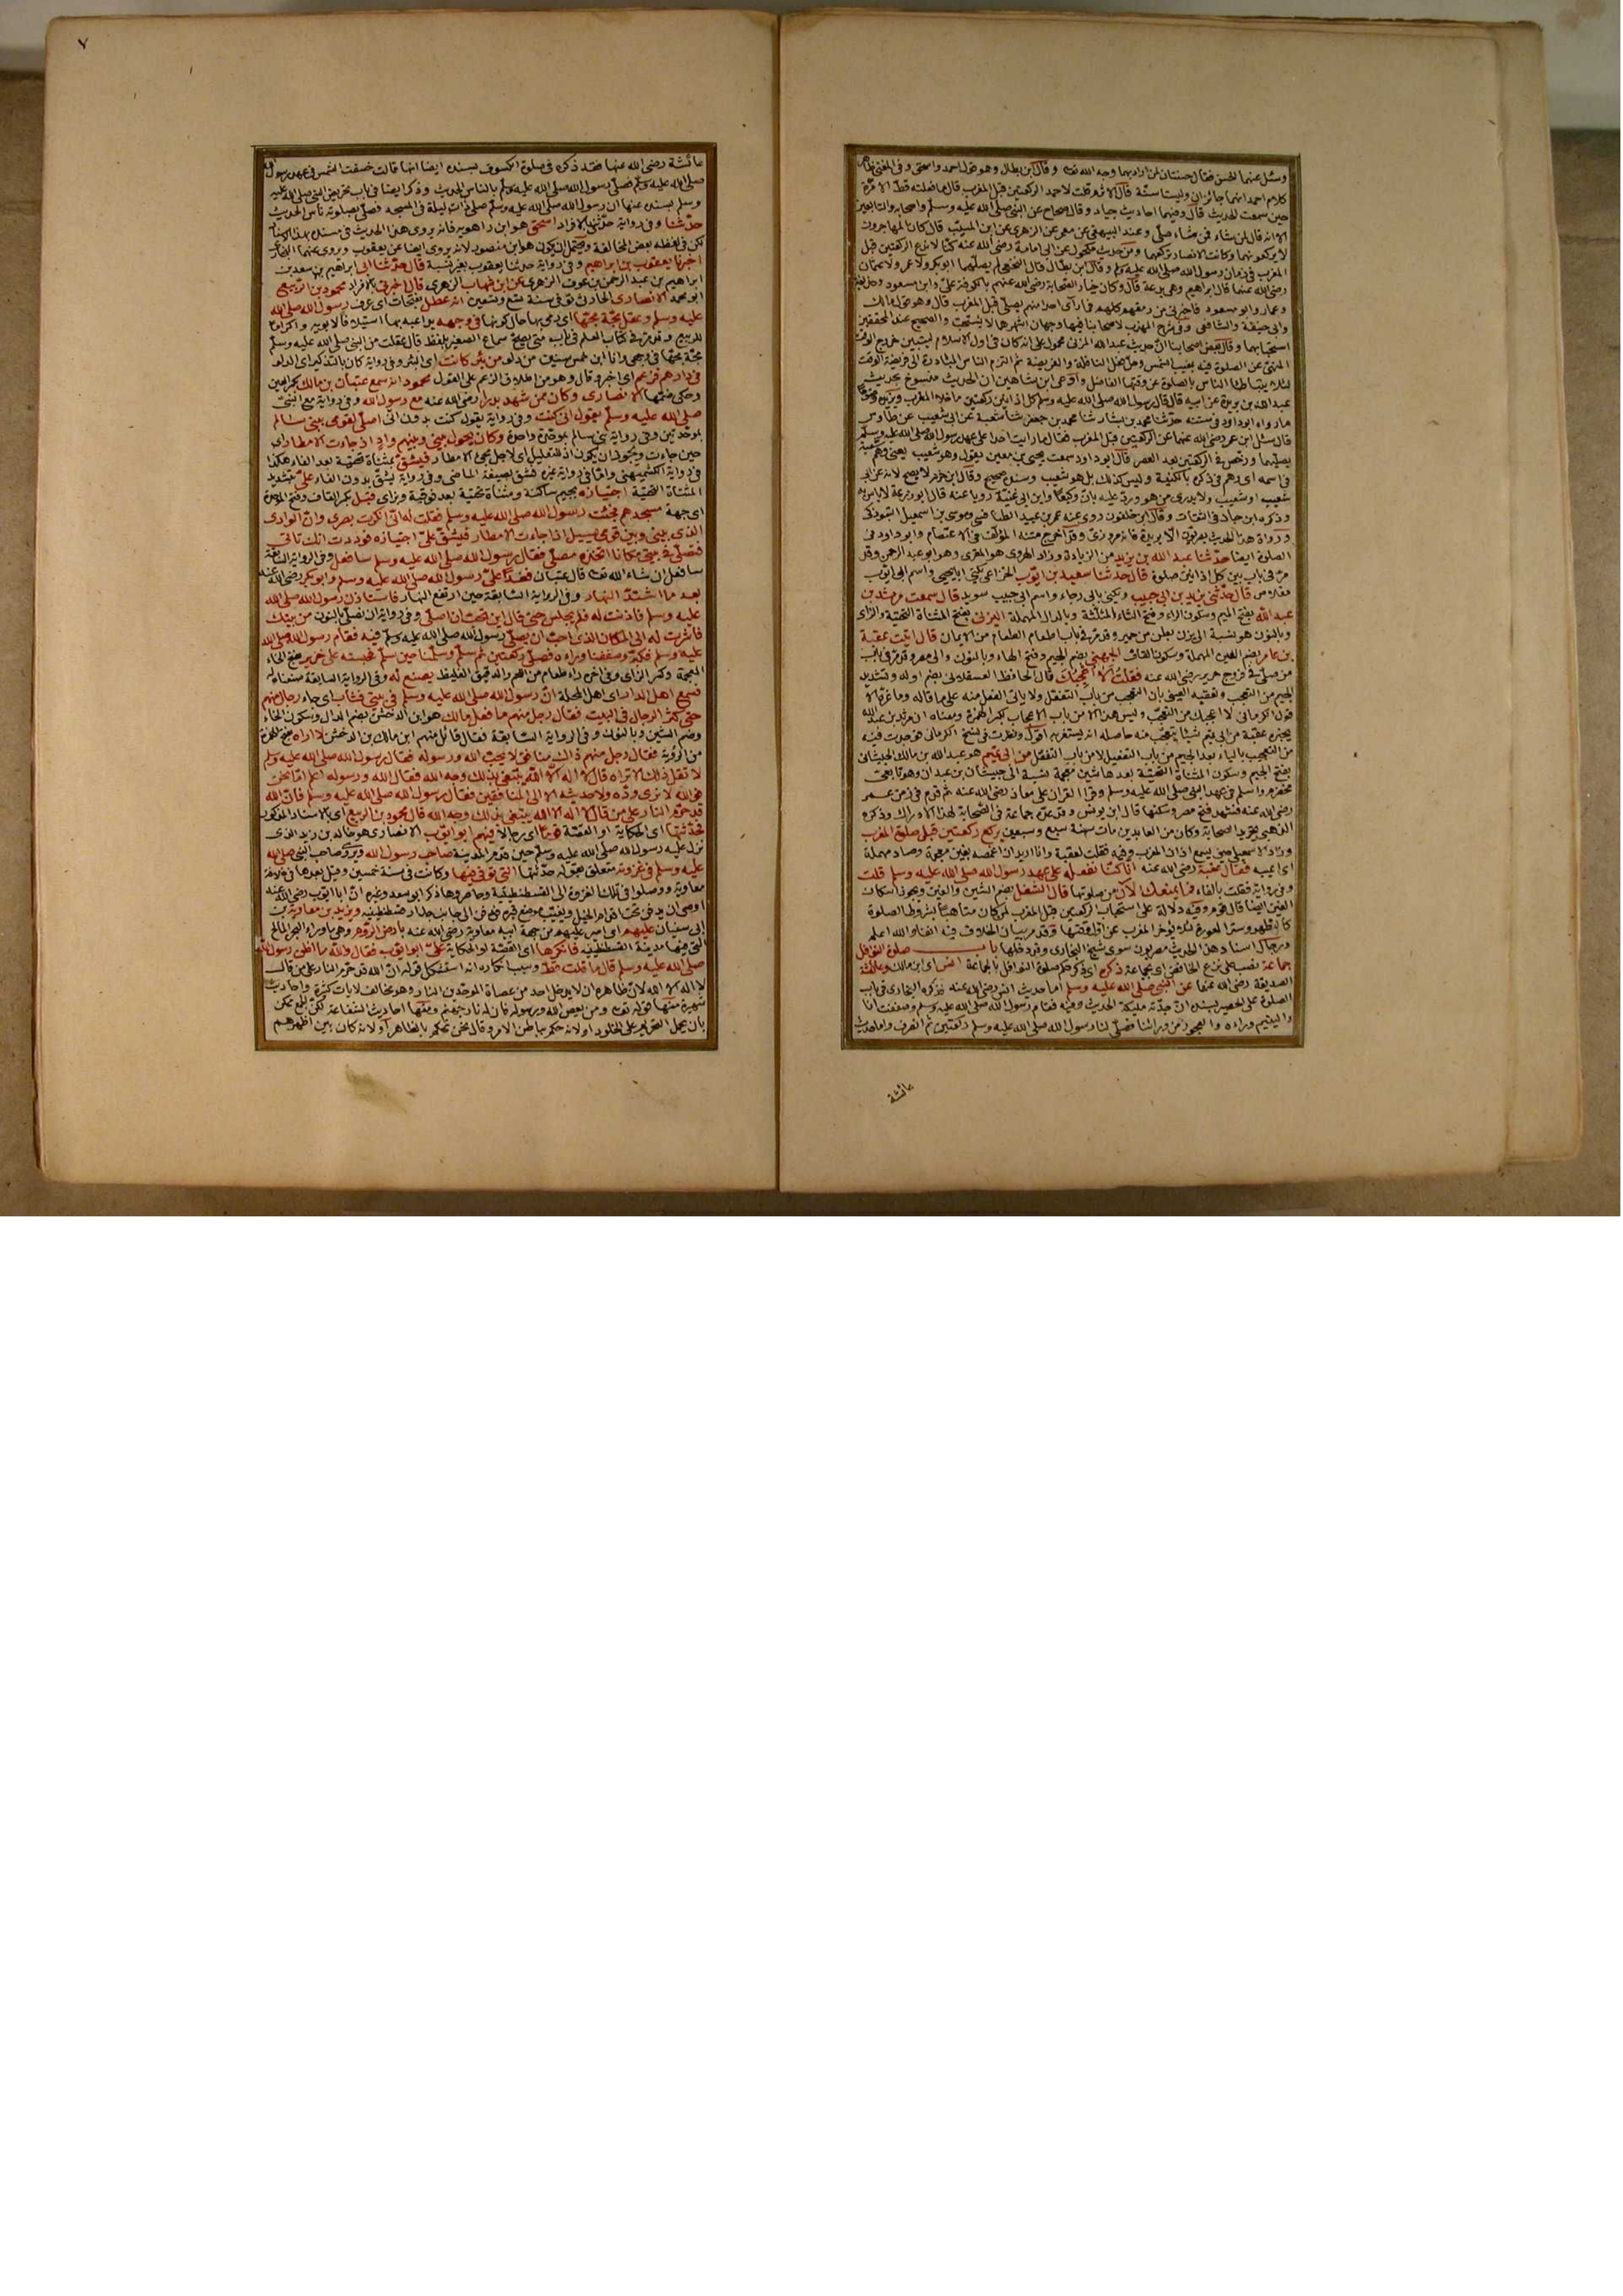 وسئل عنهما الحسن فقال حسنتان لمن اراد بهما وجه الله تعالى وقال ابن بطال وهو قول احمد واسحق وفي المغني ظاهر
كلام احمد انهما جائزان وليستا سنة قال الاثرم قلت لاحمد الركعتين قبل المغرب قال ما فعلته قط الا مرة
حين سمعت الحديث قال وفيهما احاديث جياد وقال صحاح عن النبي صلى الله عليه وسلم واصحابه والتابعين
الا انه قال لمن شاء فمن شاء صلى وعند البيهقي عن معمر عن الزهري عن ابن المسيب قال كان المهاجرون
لا يركعونهما وكانت الانصار تركعهما ومن حديث مكحول عن ابي امامة رضي الله عنه كنا لا ندع الركعتين قبل
المغرب في زمان رسول الله صلى الله عليه وسلم وقال ابن بطال قال النخعي لم يصلهما ابو بكر ولا عمر ولا عثمان
رضي الله عنهما قال ابراهيم وهي بدعة قال وكان خيار الصحابة رضي الله عنهم بالكوفة علي وابن مسعود وحذيفة
وعمار وابو مسعود فاخبرني من رمقهم كلهم فما رأى احدا منهم يصلي قبل المغرب قال وهو قول مالك
وابي حنيفة والشافعي وفي شرح المهذب لاصحابنا فيها وجهان اشهرهما لا يستحب والصحيح عند المحققين
استحبابهما وقال بعض اصحابنا ان حديث عبد الله المزني محمول على انه كان في اول الاسلام ليتبين خروج الوقت
المنهي عن الصلوة فيه بمغيب الشمس وحل فعل النافلة والفريضة ثم التزم الناس المبادرة الى فريضة الوقت
لئلا يتباطأ الناس بالصلوة عن وقتها الفاضل وادعى ابن شاهين ان الحديث منسوخ بحديث
عبد الله بن بريدة عن ابيه قال قال رسول الله صلى الله عليه وسلم كل اذانين ركعتين ما خلا المغرب ويزيده وضوحا
ما رواه ابو داود في سننه حدثنا محمد بن بشار ثنا محمد بن جعفر ثنا شعبة عن ابي شعيب عن طاوس
قال سئل ابن عمر رضي الله عنهما عن الركعتين قبل المغرب فقال ما رايت احدا على عهد رسول الله صلى الله عليه وسلم
يصليهما ورخص في الركعتين بعد العصر قال ابو داود سمعت يحيى بن معين يقول وهو شعيب يعني وهم شعبة
في اسمه اي وهم في ذكره بالكنية وليس كذلك بل هو شعيب وسنده صحيح وقال ابن حزم لا يصح لانه عن ابي
شعيب او شعيب ولا يدرى من هو ورد عليه بان وكيعا وابن ابي غنية رويا عنه قال ابو زرعة لا باس به
وذكره ابن حبان في الثقات وقال ابن خلفون روى عنه عمر بن عبيد الطنافسي وموسى بن اسمعيل التبوذكي
ورواة هذا الحديث بصريون الا بريدة فانه مروزي وقد اخرج متنه المؤلف في الاعتصام وابو داود في
الصلوة ايضا حدثنا عبد الله بن يزيد من الزيادة وزاد الهروي هو المقري وهو ابو عبد الرحمن وقد
مر في باب بين كل اذانين صلوة قال حدثنا سعيد بن ايوب الخزاعي يكنى ابا يحيى واسم ابي ايوب
مقلاص قال حدثني يزيد بن ابي حبيب ويكنى بابي رجاء واسم ابي حبيب سويد قال سمعت مرثد بن
عبد الله بفتح الميم وسكون الراء وفتح الثاء المثلثة وبالدال المهملة اليزني بفتح المثناة التحتية والزاي
وبالنون هو نسبة الى يزن بطن من حمير وقد مر في باب اطعام الطعام من الايمان قال اتيت عقبة
بن عامر بضم العين المهملة وسكون القاف الجهني بضم الجيم وفتح الهاء وبالنون والي مصر وقد مر في باب
من صلى في فروج حرير رضي الله عنه فقلت الا اعجبك قال الحافظ العسقلاني بضم اوله وتشديد
الجيم من التعجب وتعقبه العيني بان التعجب من باب التفعل ولا ياتي الفعل منه على ما قاله وما غره الا
قول الكرماني لا اعجبك من التعجب وليس هذا الا من باب الاعجاب بكسر الهمزة ومعناه ان مرثد بن عبد الله
يخبره عقبة من ابي تميم شيئا يتعجب منه حاصله انه يستغربه اقول ونظرت في نسخ الكرماني فوجدت فيه
من التعجيب بالياء بعد الجيم من باب التفعيل لا من باب التفعل من ابي تميم هو عبد الله بن مالك الجيشاني
بفتح الجيم وسكون المثناة التحتية بعدها شين معجمة نسبة الى جيشان بن عبدان وهو تابعي
مخضرم اسلم في عهد النبي صلى الله عليه وسلم وقرأ القران على معاذ رضي الله عنه ثم قدم في زمن عمر
رضي الله عنه فشهد فتح مصر وسكنها قال ابن يونس وقد عده جماعة في الصحابة لهذا الادراك وذكره
الذهبي في تجريد الصحابة وكان من العابدين مات سنة سبع وسبعين يركع ركعتين قبل صلوة المغرب
وزاد الاسمعيلي حين يسمع اذان المغرب وفيه فقلت لعقبة وانا اريد ان اغمصه بغين معجمة وصاد مهملة
اي اعيبه فقال عقبة رضي الله عنه انا كنا نفعله على عهد رسول الله صلى الله عليه وسلم قلت
وفي رواية فقلت بالفاء فما يمنعك الآن من صلوتها قال الشغل بضم الشين والغين ويجوز اسكان
الغين ايضا قال قوم وفيه دلالة على استحباب الركعتين قبل المغرب لمن كان متاهبا بشروط الصلوة
كالتطهر وستر العورة لئلا يؤخر المغرب عن اول وقتها وقد مر بيان الخلاف فيه انفا والله اعلم
ورجال اسناد هذا الحديث مصريون سوى شيخ البخاري وقد دخلها باب صلوة النوافل
جماعة نصب على نزع الخافض اي بجماعة ذكره اي ذكر حكم صلوة النوافل بالجماعة انس اي ابن مالك وعائشة
الصديقة رضي الله عنها عن النبي صلى الله عليه وسلم اما حديث انس رضي الله عنه فذكره البخاري في باب
الصلوة على الحصير بسنده ان جدته مليكة الحديث وفيه فقام رسول الله صلى الله عليه وسلم وصففت انا
واليتيم وراءه والعجوز من ورائنا فصلى لنا رسول الله صلى الله عليه وسلم ركعتين ثم انصرف واما حديث
عائشة
٧
عائشة رضي الله عنها فقد ذكره في صلوة الكسوف بسنده ايضا انها قالت خسفت الشمس في عهد رسول الله
صلى الله عليه وسلم فصلى رسول الله صلى الله عليه وسلم بالناس الحديث وذكر ايضا في باب تحريض النبي صلى الله عليه
وسلم بسنده عنها ان رسول الله صلى الله عليه وسلم صلى ذات ليلة في المسجد فصلى بصلوته ناس الحديث
حدثنا وفي رواية حدثني بالافراد اسحق هو ابن راهويه فانه يروى هذا الحديث في مسنده بهذا الاسناد
لكن في لفظه بعض المخالفة ويحتمل ان يكون هو ابن منصور لانه يروي ايضا عن يعقوب ويروي عنهما البخاري
اخبرنا يعقوب بن ابراهيم وفي رواية حدثنا يعقوب بغير نسبة قال حدثنا ابي ابراهيم بن سعد بن
ابراهيم بن عبد الرحمن بن عوف الزهري عن ابن شهاب الزهري قال اخبرني بالافراد محمود بن الربيع
ابو محمد الانصاري الحادث توفي سنة تسع وتسعين انه عقل بفتحات اي عرف رسول الله صلى الله
عليه وسلم وعقل مجة مجها اي رمى بها حال كونها في وجهه يداعبه بها استيلافا لابويه واكراما
للربيع وقد مر في كتاب العلم في باب متى يصح سماع الصغير بلفظ قال عقلت من النبي صلى الله عليه وسلم
مجة مجها في وجهي وانا ابن خمس سنين من دلو من بئر كانت اي البئر وفي رواية كان بالتذكير اي الدلو
في دارهم فزعم اي اخبر وقال وهو من اطلاق الزعم على القول محمود انه سمع عتبان بن مالك بكسر العين
وحكى ضمها الانصاري وكان ممن شهد بدرا رضي الله عنه مع رسول الله وفي رواية مع النبي
صلى الله عليه وسلم يقول اني كنت وفي رواية يقول كنت بدون اني اصلي لقومي ببني سالم
بموحدتين وفي رواية بني سالم بموحدة واحدة وكان يحول بيني وبينهم واد اذ جاءت الامطار اي
حين جاءت ويجوز ان يكون اذ للتعليل اي لاجل مجيء الامطار فيشق بمثناة تحتية بعد الفاء هكذا
في رواية الكشميهني واما في رواية غيره فشق بصيغة الماضي وفي رواية يشق بدون الفاء علي بتشديد
المثناة التحتية اجتيازه بجيم ساكنة ومثناة تحتية بعد فوقية وزاي قبل بكسر القاف وفتح الموحدة
اي جهة مسجدهم فجئت رسول الله صلى الله عليه وسلم فقلت له اني انكرت بصري وان الوادي
الذي بيني وبين قومي يسيل اذا جاءت الامطار فيشق علي اجتيازه فوددت انك تاتي
فتصلي في بيتي مكانا اتخذه مصلى فقال رسول الله صلى الله عليه وسلم سافعل وفي الرواية السابقة
سافعل ان شاء الله تعالى قال عتبان فغدا علي رسول الله صلى الله عليه وسلم وابو بكر رضي الله عنه
بعد ما اشتد النهار وفي الرواية السابقة حين ارتفع النهار فاستاذن رسول الله صلى الله
عليه وسلم فاذنت له فلم يجلس حتى قال اين تحب ان اصلي وفي رواية ان نصلي بالنون من بيتك
فاشرت له الى المكان الذي احب ان يصلي رسول الله صلى الله عليه وسلم فيه فقام رسول الله صلى الله
عليه وسلم فكبر وصففنا وراءه فصلى ركعتين ثم سلم وسلمنا حين سلم فحبسته على خزير بفتح الخاء
المعجمة وكسر الزاي وفي اخره راء طعام من اللحم والدقيق الغليظ يصنع له وفي الرواية السابقة صنعناه له
فسمع اهل الدار اي اهل المحلة ان رسول الله صلى الله عليه وسلم في بيتي فثاب اي جاء رجال منهم
حتى كثر الرجال في البيت فقال رجل منهم ما فعل مالك هو ابن الدخشن بضم الدال وسكون الخاء
وضم الشين وبالنون وفي الرواية السابقة فقال قائل منهم اين مالك بن الدخشن لا اراه بفتح الهمزة
من الرؤية فقال رجل منهم ذاك منافق لا يحب الله ورسوله فقال رسول الله صلى الله عليه وسلم
لا تقل ذاك الا تراه قال لا اله الا الله يبتغي بذلك وجه الله فقال الله ورسوله اعلم اما نحن
فوالله لا نرى وده ولا حديثه الا الى المنافقين فقال رسول الله صلى الله عليه وسلم فان الله
قد حرم النار على من قال لا اله الا الله يبتغي بذلك وجه الله قال محمود بن الربيع اي بالاسناد المذكور
فحدثتها اي الحكاية او القصة قوما اي رجالا فيهم ابو ايوب الانصاري هو خالد بن زيد الذي
نزل عليه رسول الله صلى الله عليه وسلم حين قدم المدينة صاحب رسول الله ويروى صاحب النبي صلى الله
عليه وسلم في غزوته متعلق بقوله حدثتها التي توفي فيها وكانت في سنة خمسين وقيل بعدها في خلافة
معاوية ووصلوا في تلك الغزوة الى القسطنطينية وحاصروها ذكر ابو سعد وغيره ان ابا ايوب رضي الله عنه
اوصى ان يدفن تحت اقدام الخيل ويغيب موضع قبره فدفن الى جانب جدار قسطنطينية ويزيد بن معاوية بن
ابي سفيان عليهم اي امير عليهم من جهة ابيه معاوية رضي الله عنه بارض الروم وهي ما وراء البحر المالح
التي فيها مدينة القسطنطينية فانكرها اي القصة او الحكاية علي ابو ايوب فقال والله ما اظن رسول الله
صلى الله عليه وسلم قال ما قلت قط وسبب انكاره انه استشكل قوله ان الله قد حرم النار على من قال
لا اله الا الله لان ظاهره ان لا يدخل احد من عصاة الموحدين النار وهو مخالف لايات كثيرة واحاديث
شهيرة منها قوله تعالى ومن يعص الله ورسوله فان له نار جهنم ومنها احاديث الشفاعة لكن الجمع ممكن
بان يحمل التحريم على الخلود او لانه حكم بباطن الامر وقال نحن نحكم بالظاهر او لانه كان بين اظهرهم